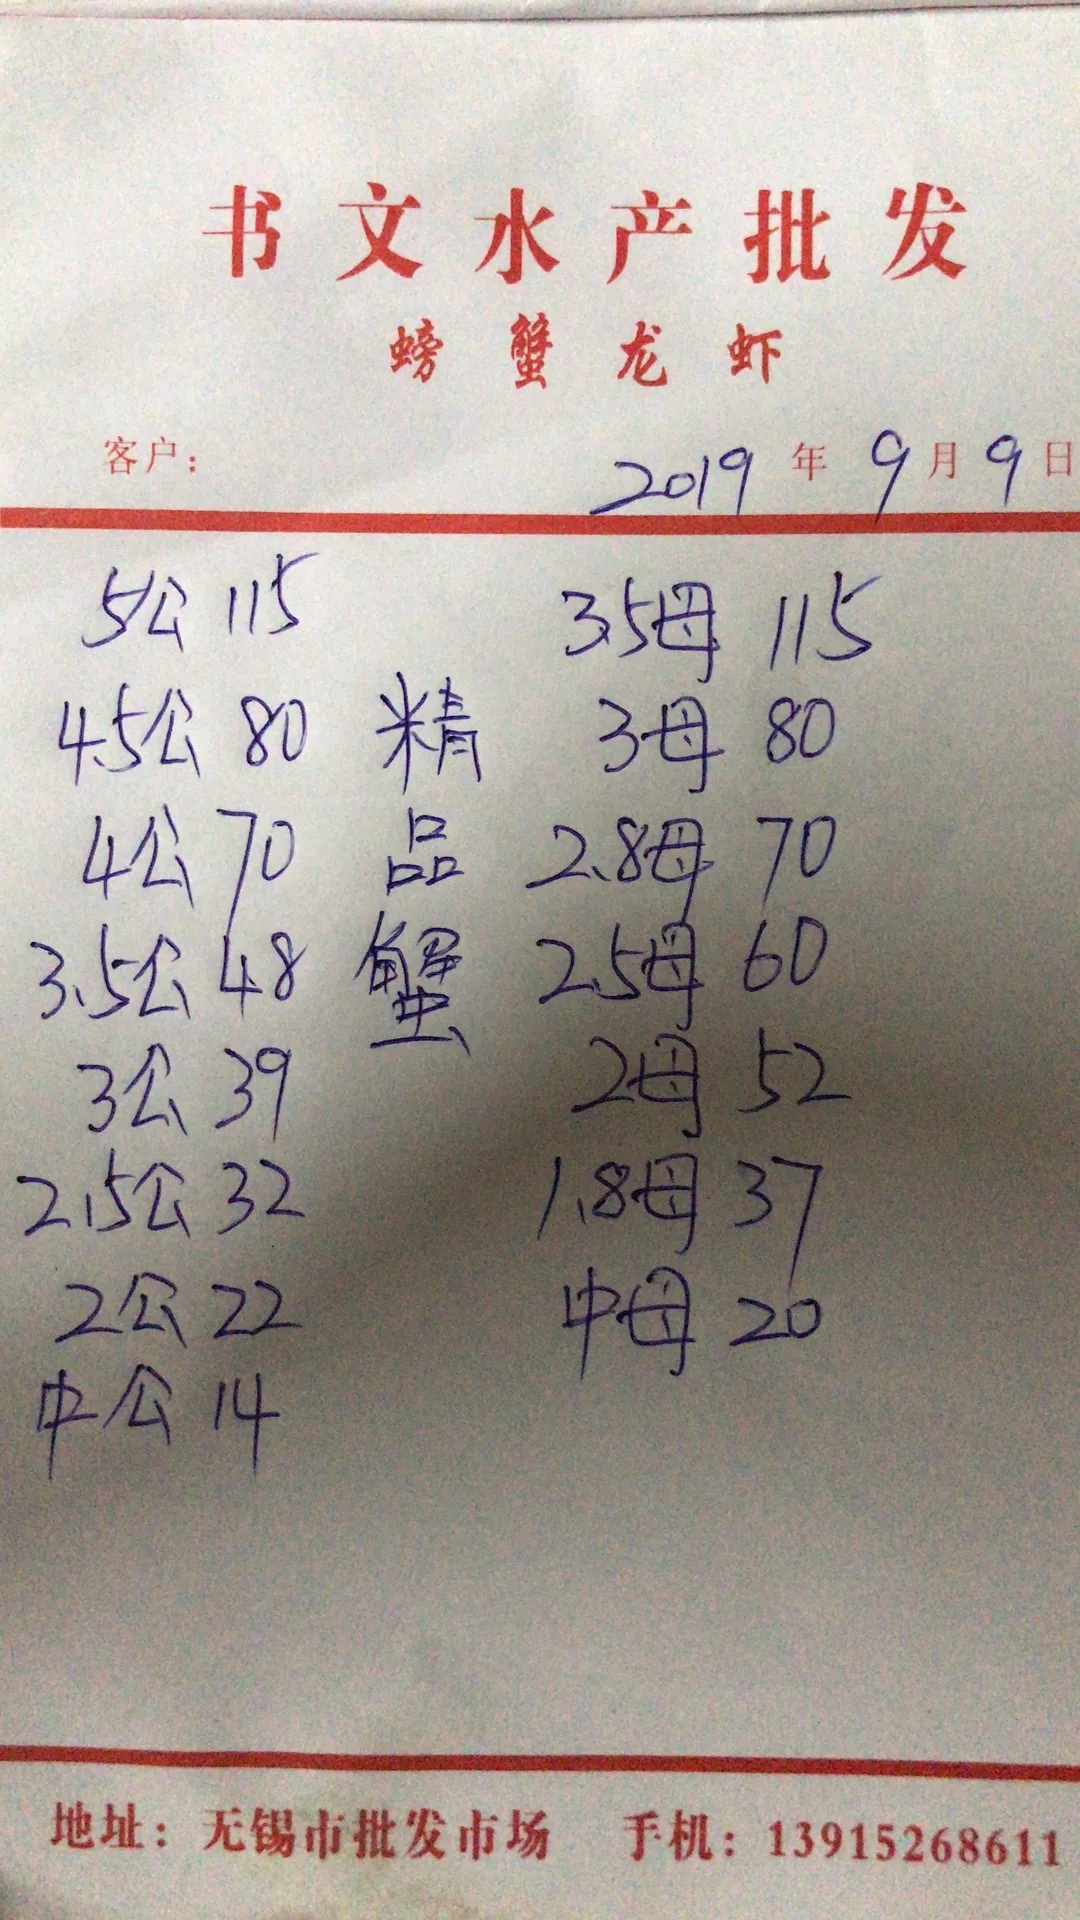 书文水产批发
螃蟹龙虾
客户： 2019年9月9日
5公 115 3.5母 115
4.5公 80 精 3母 80
4公 70 品 2.8母 70
3.5公 48 蟹 2.5母 60
3公 39 2母 52
2.5公 32 1.8母 37
2公 22 中母 20
中公 14
地址：无锡市批发市场 手机：13915268611